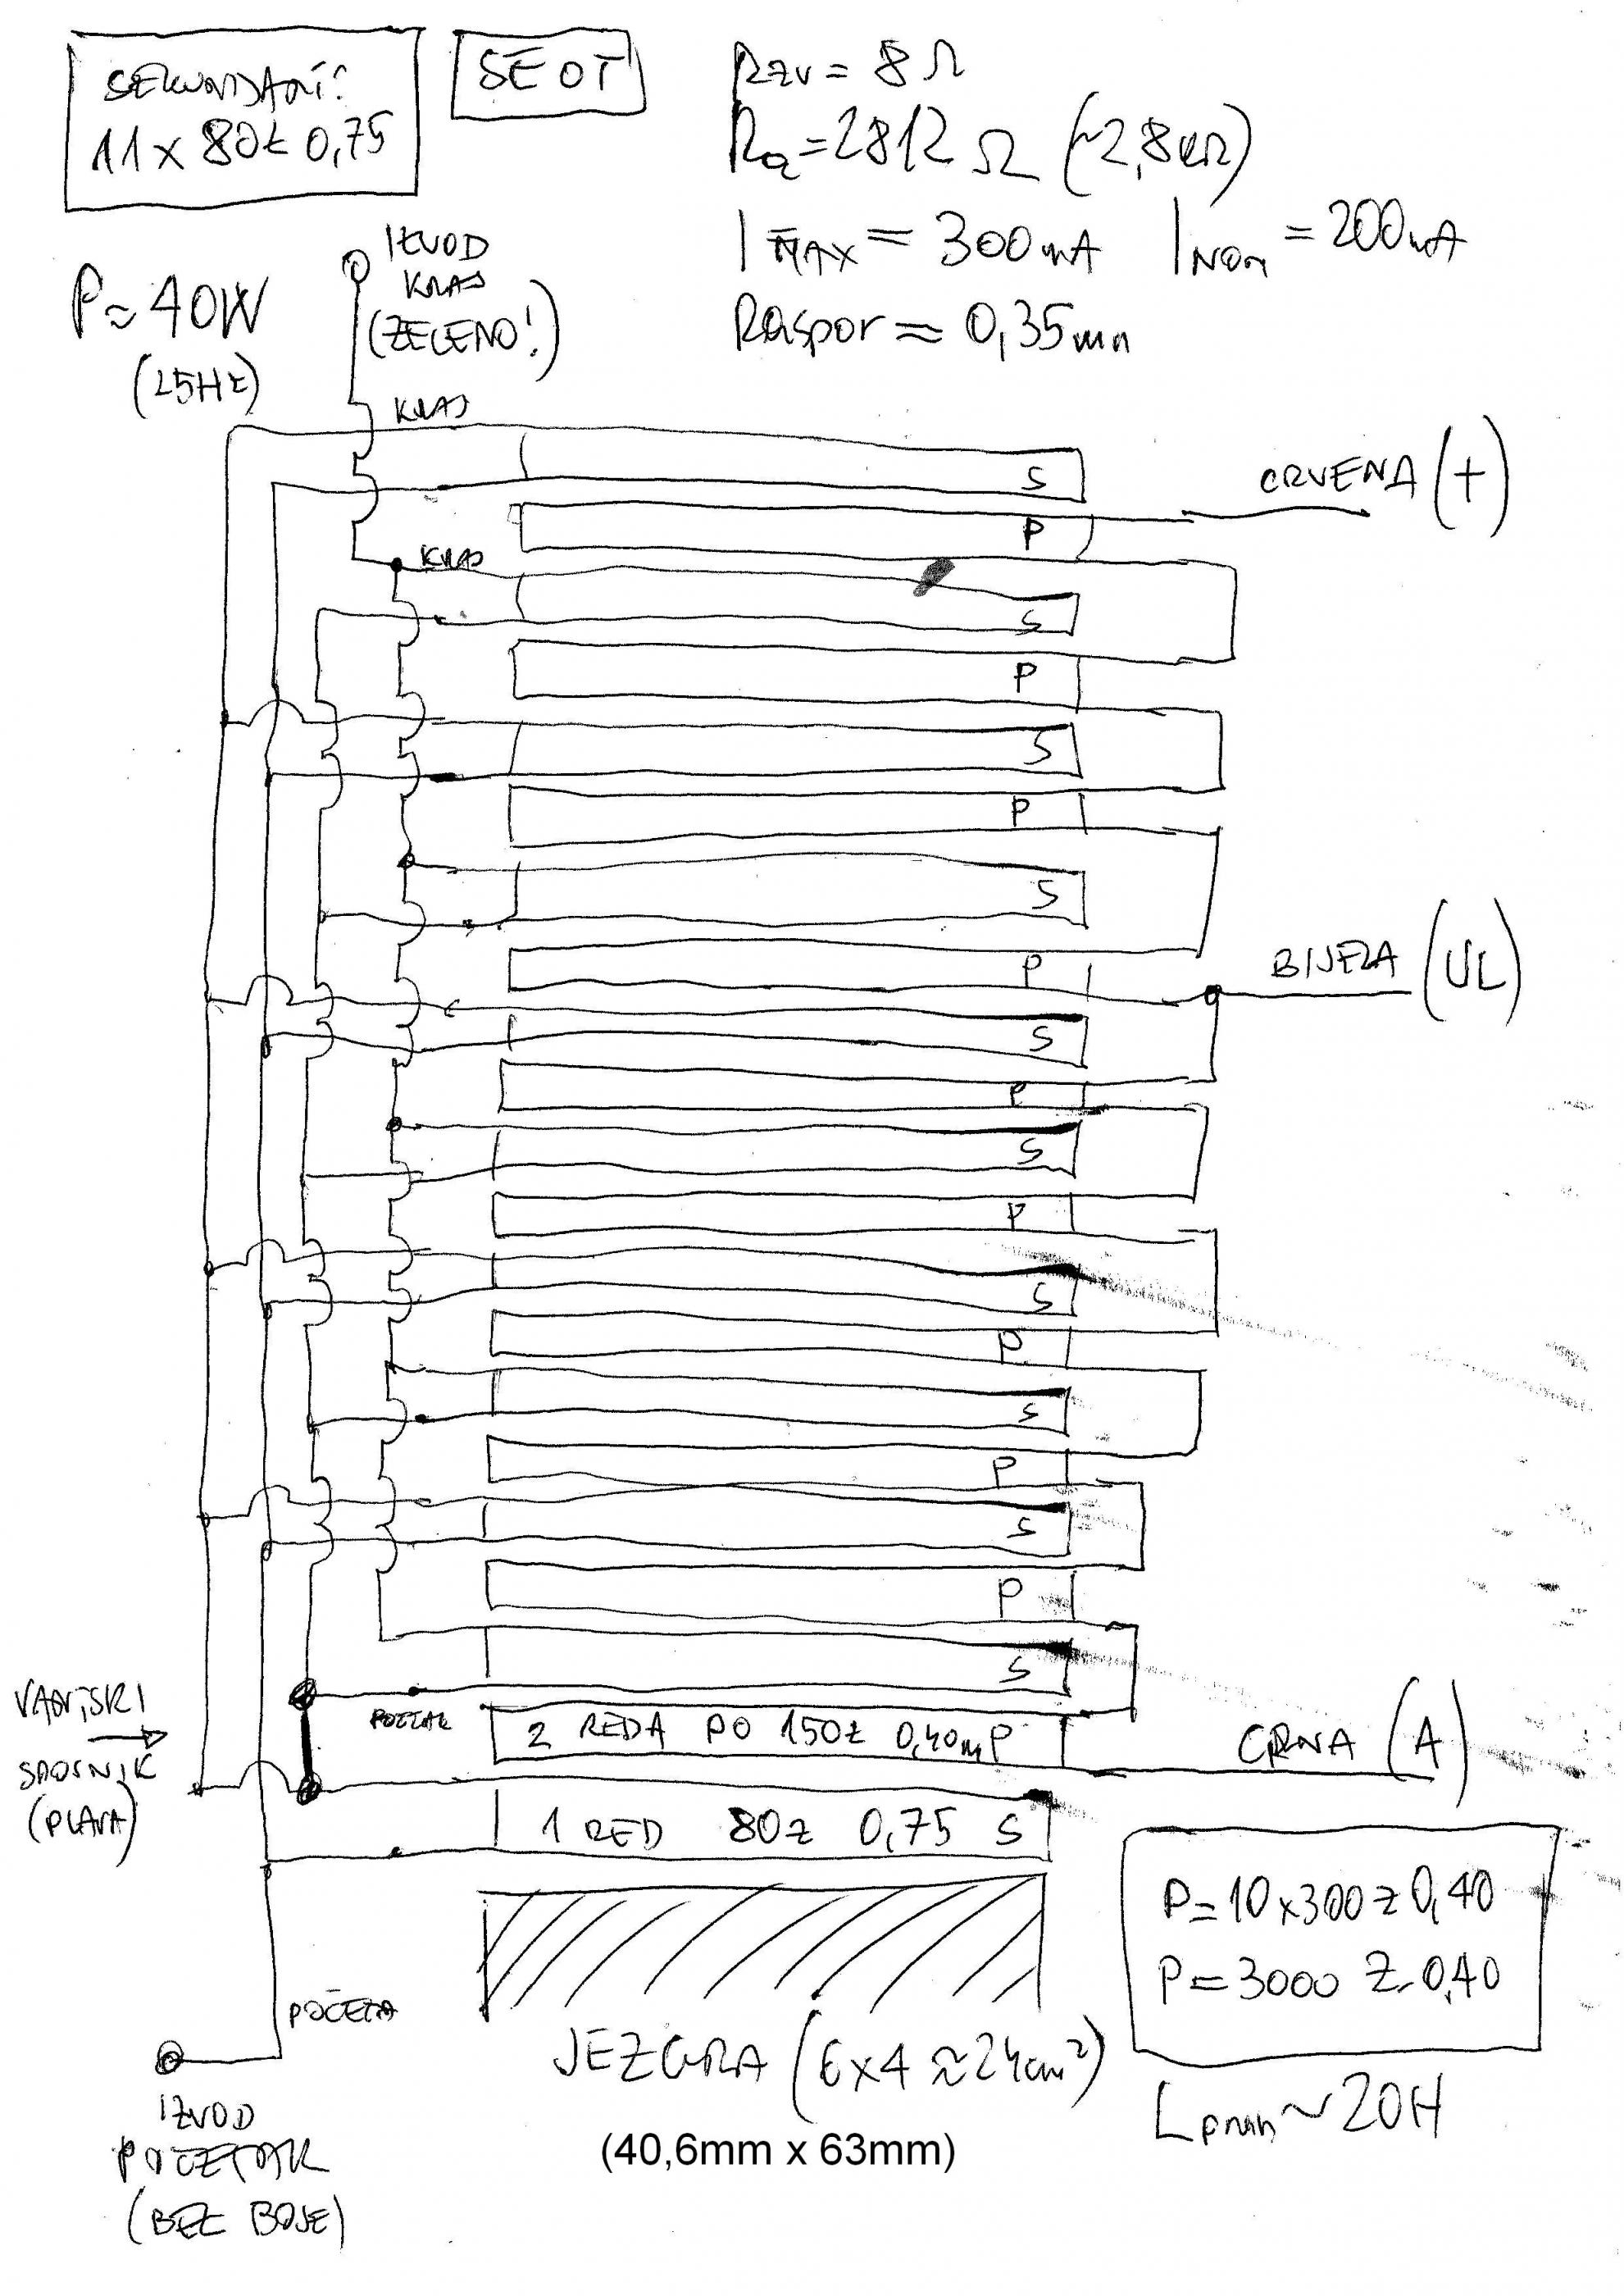 SEKUNDARI:
11 x 80z 0,75
SE OT
Rzv = 8 Ω
Ra = 2812 Ω (~2,8kΩ)
I MAX = 300mA I NOM = 200mA
Raspor ≈ 0,35mm
P≈40W
(25Hz)
IZVOD
KRAJ
(ZELENO!)
KRAJ
S
CRVENA (+)
P
KRAJ
S
P
S
P
S
P
BIJELA (UL)
S
P
S
P
S
P
S
P
S
P
S
VANJSKI
SPOJNIK
(PLAVA)
POČETAK
2 REDA PO 150z 0,40m P
CRNA (A)
1 RED 80z 0,75 S
P=10x300z 0,40
P=3000 z 0,40
POČETAK
JEZGRA (6x4 ≈24cm²)
(40,6mm x 63mm)
Lprim ~ 20H
IZVOD
POČETAK
(BEZ BOJE)